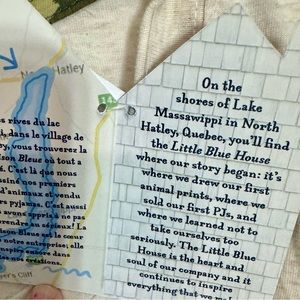 No
Hatley
14
es rives du lac
i, dans le village de
y, vous trouverez la
son Bleue où tout a
é. C'est là que nous
siné nos premiers
d'animaux et vendu
rs pyjamas. C'est
vons appris à ne pas
rendre au sérieux! La
on Bleue est le cœur
notre entreprise; elle
e inspirante et continue
yer's Cliff
On the
shores of Lake
Massawippi in North
Hatley, Quebec, you'll find
the Little Blue House
where our story began: it's
where we drew our first
animal prints, where we
sold our first PJs, and
where we learned not to
take ourselves too
seriously. The Little Blue
House is the heart and
soul of our company and it
continues to inspire
everything that we